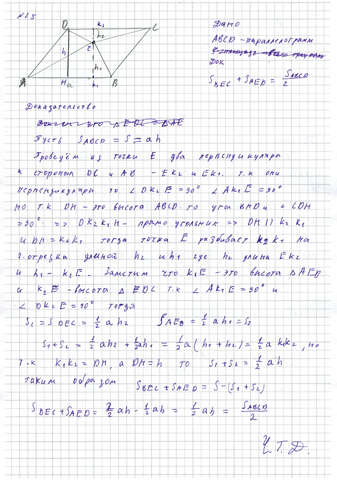 №25
D K₂ C
h h₂
E
h₁
A H a K₁ B
Дано
ABCD - параллелограмм
Док
S BEC + S AED = S ABCD / 2
Доказательство
Пусть S ABCD = S = ah
Проведём из точки E два перпендикуляра
к сторонам DC и AB - EK₂ и EK₁ т.к они
перпендикуляры то ∠DK₂E = 90° ∠AK₁E = 90°
но т.к DH - это высота ABCD то угол BHD и ∠CDH
= 90° => DK₂K₁H - прямоугольник => DH || K₂K₁
и DH = K₂K₁ тогда точка E разбивает K₂K₁ на
2 отрезка длиной h₂ и h₁ где h₂ длина EK₂
и h₁ - K₁E. Заметим что K₁E - это высота △AEB
и K₂E - высота △EDC т.к ∠AK₁E = 90° и
∠DK₂E = 90° тогда
S₂ = S DEC = 1/2 ah₂ S AEB = 1/2 ah₁ = S₁
S₁ + S₂ = 1/2 ah₂ + 1/2 ah₁ = 1/2 a(h₁ + h₂) = 1/2 a K₁K₂, но
т.к K₁K₂ = DH, а DH = h то S₁ + S₂ = 1/2 ah
таким образом S BEC + S AED = S - (S₁ + S₂)
S BEC + S AED = ah - 1/2 ah = 1/2 ah = S ABCD / 2
Ч.Т.Д.